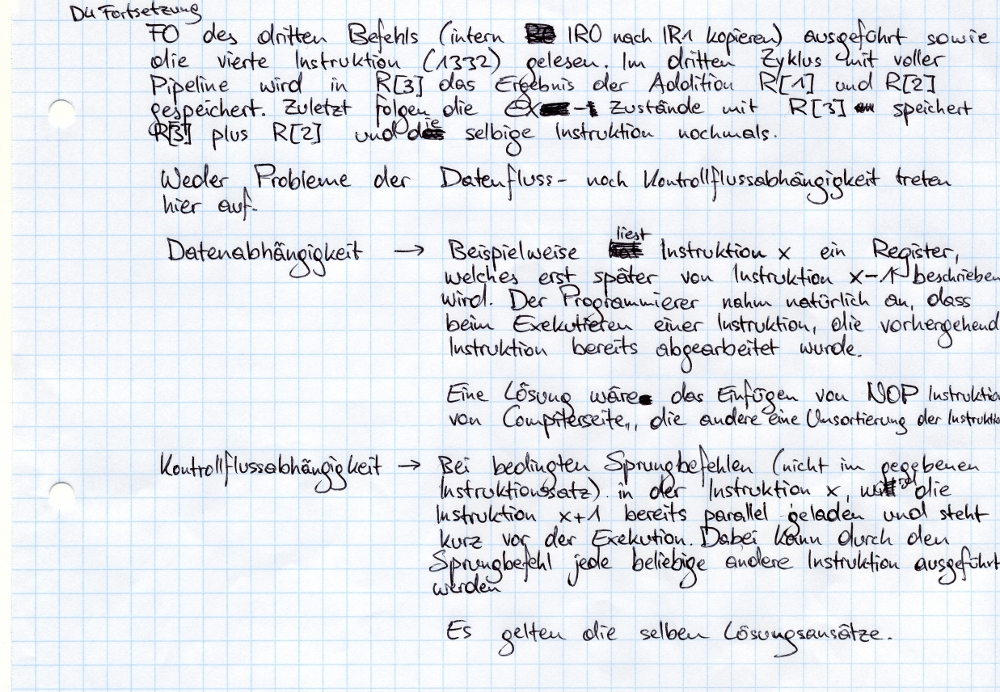 D4 Fortsetzung
FO des dritten Befehls (intern IR0 nach IR1 kopieren) ausgeführt sowie
die vierte Instruktion (1332) gelesen. Im dritten Zyklus mit voller
Pipeline wird in R[3] das Ergebnis der Addition R[1] und R[2]
gespeichert. Zuletzt folgen die Zustände mit R[3] speichert
R[3] plus R[2] und die selbige Instruktion nochmals.
Weder Probleme der Datenfluss- noch Kontrollflussabhängigkeit treten
hier auf.
Datenabhängigkeit → Beispielweise liest Instruktion x ein Register,
welches erst später von Instruktion x-1 beschrieben
wird. Der Programmierer nahm natürlich an, dass
beim Exekutieren einer Instruktion, die vorhergehend
Instruktion bereits abgearbeitet wurde.
Eine Lösung wäre das Einfügen von NOP Instruktio
von Compilerseite, die andere eine Umsortierung der Instruktio
Kontrollflussabhängigkeit → Bei bedingten Sprungbefehlen (nicht im gegebenen
Instruktionssatz) in der Instruktion x, wird die
Instruktion x+1 bereits parallel geladen und steht
kurz vor der Exekution. Dabei kann durch den
Sprungbefehl jede beliebige andere Instruktion ausgeführt
werden
Es gelten die selben Lösungsansätze.